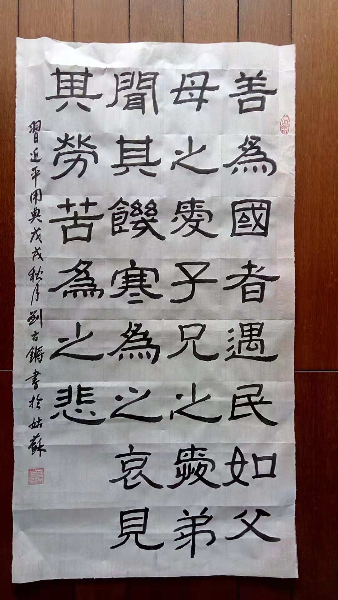 善為國者遇民如父
母之愛子兄之愛弟
聞其饑寒為之哀見
其勞苦為之悲
習近平用典戊戌秋月劉古鏘書於姑蘇